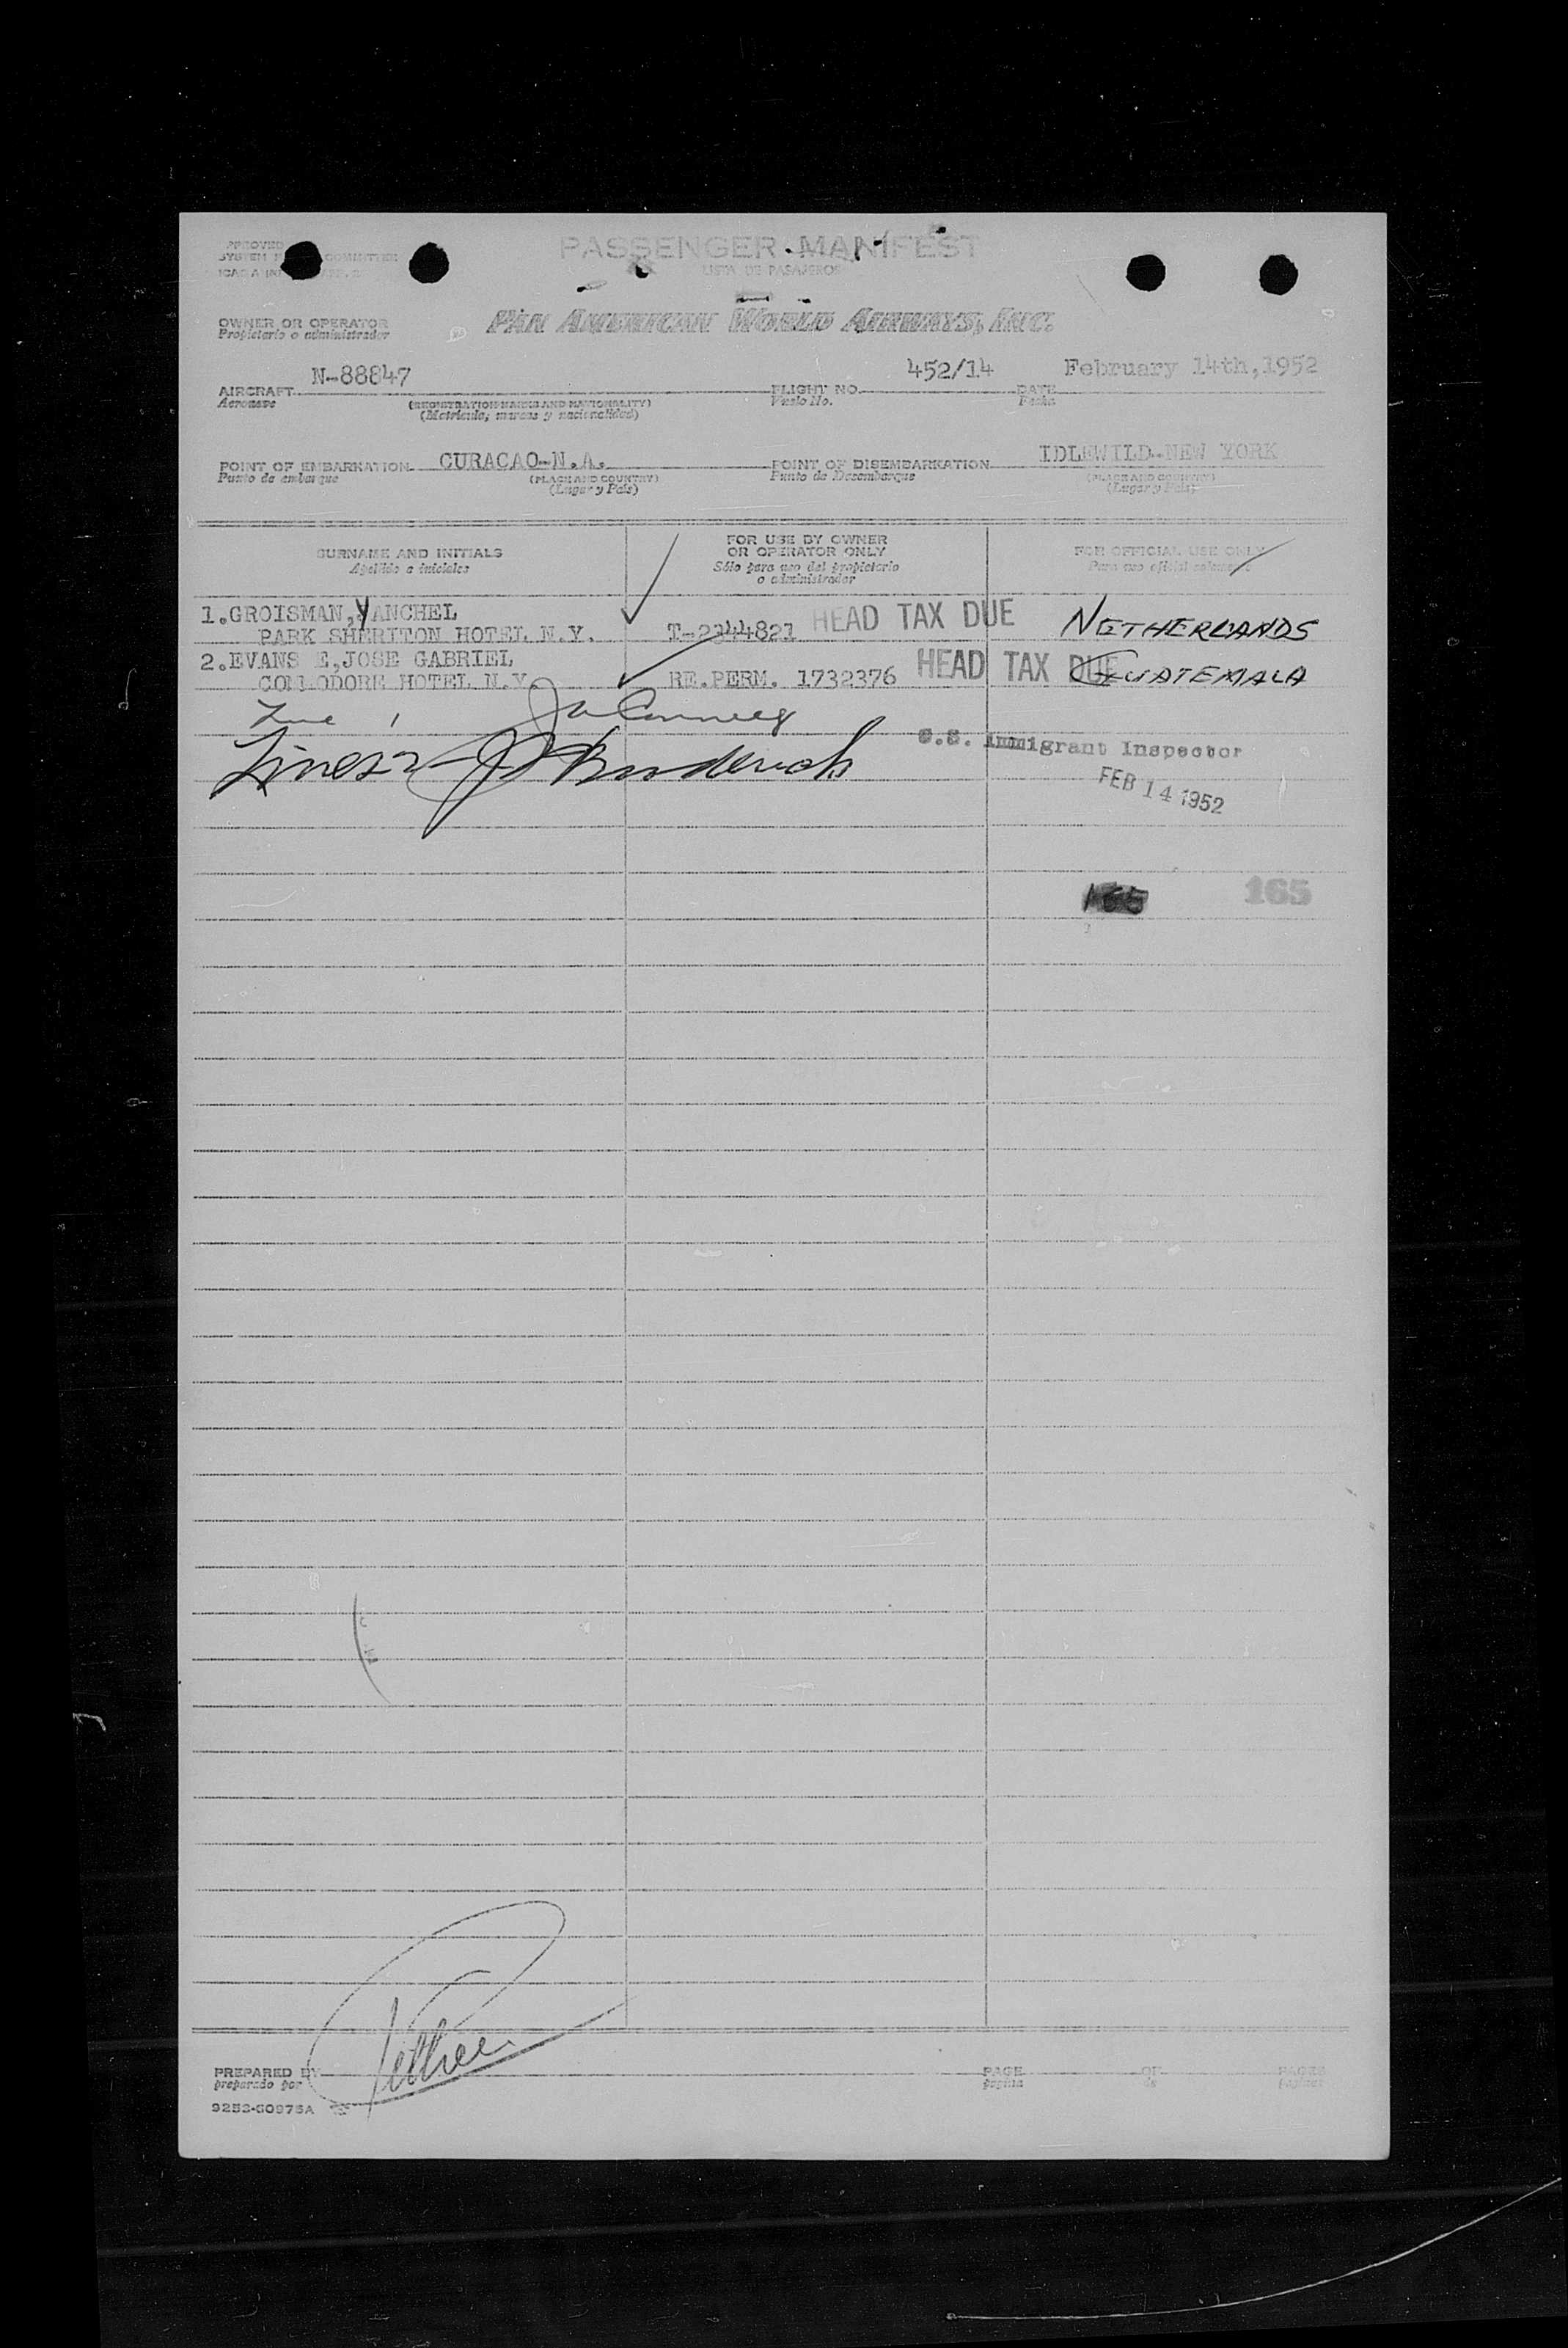 PASSENGER MANIFEST
LISTA DE PASAJEROS
OWNER OR OPERATOR
Propietario o administrador
PAN AMERICAN WORLD AIRWAYS, INC.
AIRCRAFT N-88847 FLIGHT NO. 452/14 DATE February 14th,1952
Aeronave (REGISTRATION MARKS AND NATIONALITY) Vuelo No. Fecha
(Matricula, marcas y nacionalidad)
POINT OF EMBARKATION CURACAO-N.A. POINT OF DISEMBARKATION IDLEWILD-NEW YORK
Punto de embarque (PLACE AND COUNTRY) Punto de Desembarque (PLACE AND COUNTRY)
(Lugar y País) (Lugar y País)
SURNAME AND INITIALS FOR USE BY OWNER OR OPERATOR ONLY FOR OFFICIAL USE ONLY
Apellido e iniciales Sólo para uso del propietario o administrador Para uso oficial solamente
1.GROISMAN,YANCHEL HEAD TAX DUE NETHERLANDS
PARK SHERITON HOTEL N.Y. T-2344821
2.EVANS E,JOSE GABRIEL HEAD TAX DUE GUATEMALA
COMMODORE HOTEL N.Y. RE.PERM. 1732376
Line 1
Lines 2
U.S. Immigrant Inspector
FEB 14 1952
165 165
PREPARED BY PAGE OF PAGES
preparado por pagina de paginas
9252-G0975A